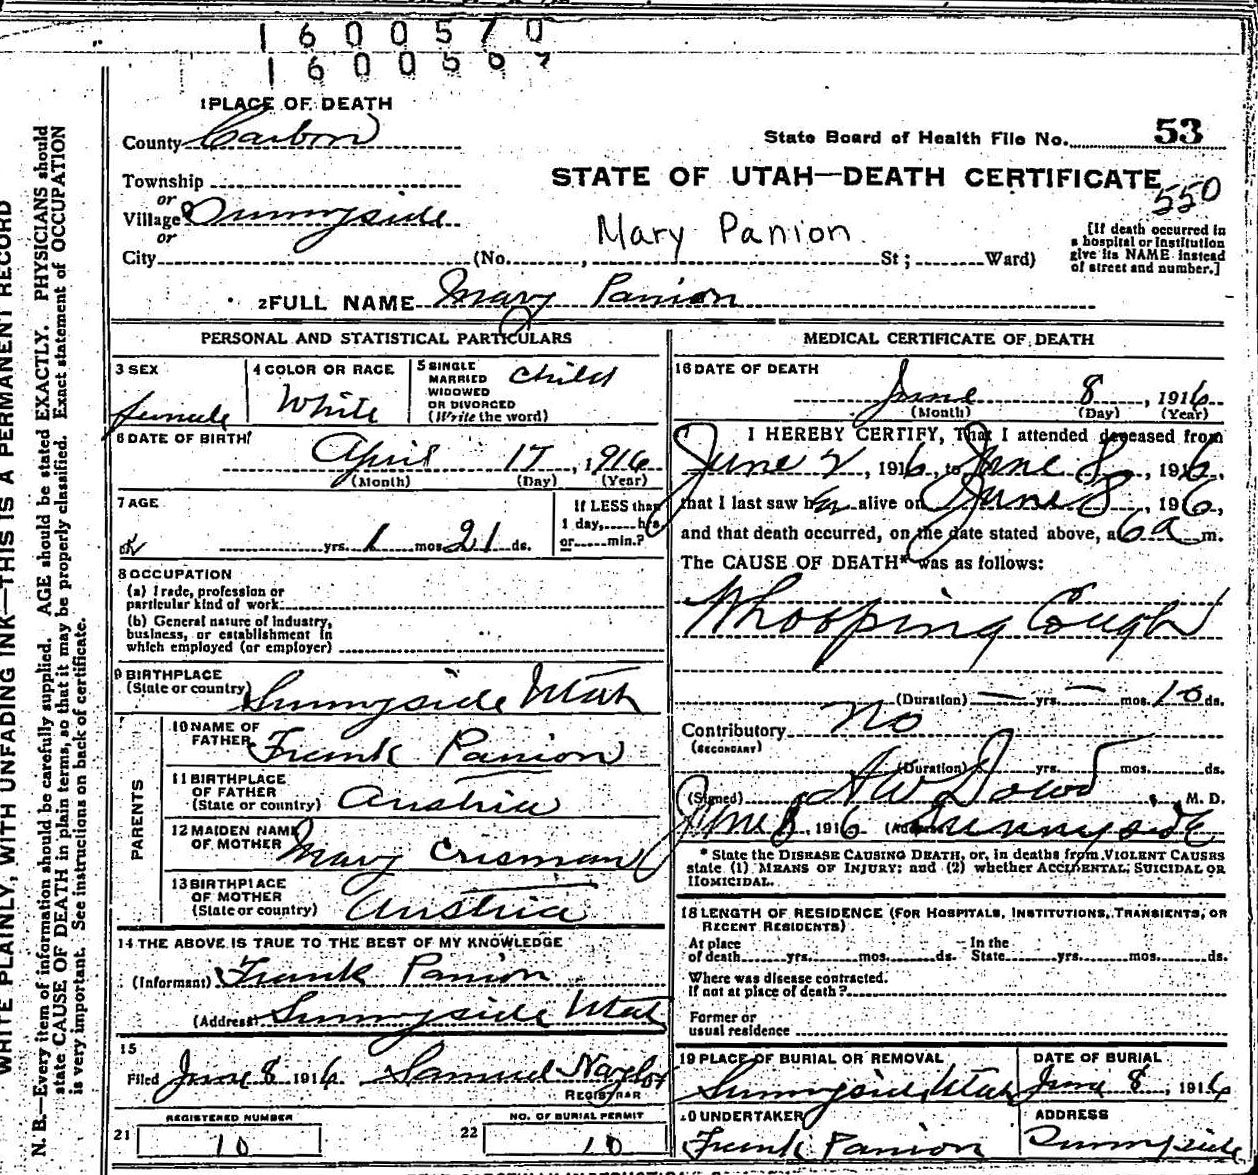 1600570
160056
1 PLACE OF DEATH
County Carbon
State Board of Health File No. 53
Township
STATE OF UTAH—DEATH CERTIFICATE
550
or
Village Sunnyside
or
Mary Panion
[If death occurred in
a hospital or institution
give its NAME instead
of street and number.]
City (No. , St ; Ward)
2 FULL NAME Mary Panion
PERSONAL AND STATISTICAL PARTICULARS
3 SEX
female
4 COLOR OR RACE
White
5 SINGLE
MARRIED
WIDOWED
OR DIVORCED
(Write the word)
child
6 DATE OF BIRTH
April 17, 1916
(Month) (Day) (Year)
7 AGE
yrs. 1 mos. 21 ds.
If LESS than
1 day, hrs
or min.?
8 OCCUPATION
(a) Trade, profession or
particular kind of work
(b) General nature of industry,
business, or establishment in
which employed (or employer)
9 BIRTHPLACE
(State or country) Sunnyside Utah
PARENTS
10 NAME OF
FATHER Frank Panion
11 BIRTHPLACE
OF FATHER
(State or country) Austria
12 MAIDEN NAME
OF MOTHER Mary Crisman
13 BIRTHPLACE
OF MOTHER
(State or country) Austria
14 THE ABOVE IS TRUE TO THE BEST OF MY KNOWLEDGE
(Informant) Frank Panion
(Address) Sunnyside Utah
15
Filed June 8 1916 Samuel Naylor
REGISTRAR
REGISTERED NUMBER
21 10
NO. OF BURIAL PERMIT
22 10
MEDICAL CERTIFICATE OF DEATH
16 DATE OF DEATH
June 8, 1916
(Month) (Day) (Year)
I HEREBY CERTIFY, That I attended deceased from
June 2, 1916, to June 8, 1916,
that I last saw her alive on June 8, 1916,
and that death occurred, on the date stated above, at 6 a m.
The CAUSE OF DEATH* was as follows:
Whooping Cough
(Duration) — yrs. — mos. 10 ds.
Contributory No
(SECONDARY)
(Duration) yrs. mos. ds.
(Signed) A W Dowd M. D.
June 8, 1916 (Address) Sunnyside
* State the DISEASE CAUSING DEATH, or, in deaths from VIOLENT CAUSES
state (1) MEANS OF INJURY; and (2) whether ACCIDENTAL, SUICIDAL OR
HOMICIDAL.
18 LENGTH OF RESIDENCE (FOR HOSPITALS, INSTITUTIONS, TRANSIENTS, OR
RECENT RESIDENTS)
At place
of death yrs. mos. ds.
In the
State yrs. mos. ds.
Where was disease contracted.
If not at place of death?
Former or
usual residence
19 PLACE OF BURIAL OR REMOVAL
Sunnyside Utah
DATE OF BURIAL
June 8, 1916
20 UNDERTAKER
Frank Panion
ADDRESS
Sunnyside
WRITE PLAINLY, WITH UNFADING INK—THIS IS A PERMANENT RECORD
N. B.—Every item of information should be carefully supplied. AGE should be stated EXACTLY. PHYSICIANS should
state CAUSE OF DEATH in plain terms, so that it may be properly classified. Exact statement of OCCUPATION
is very important. See instructions on back of certificate.